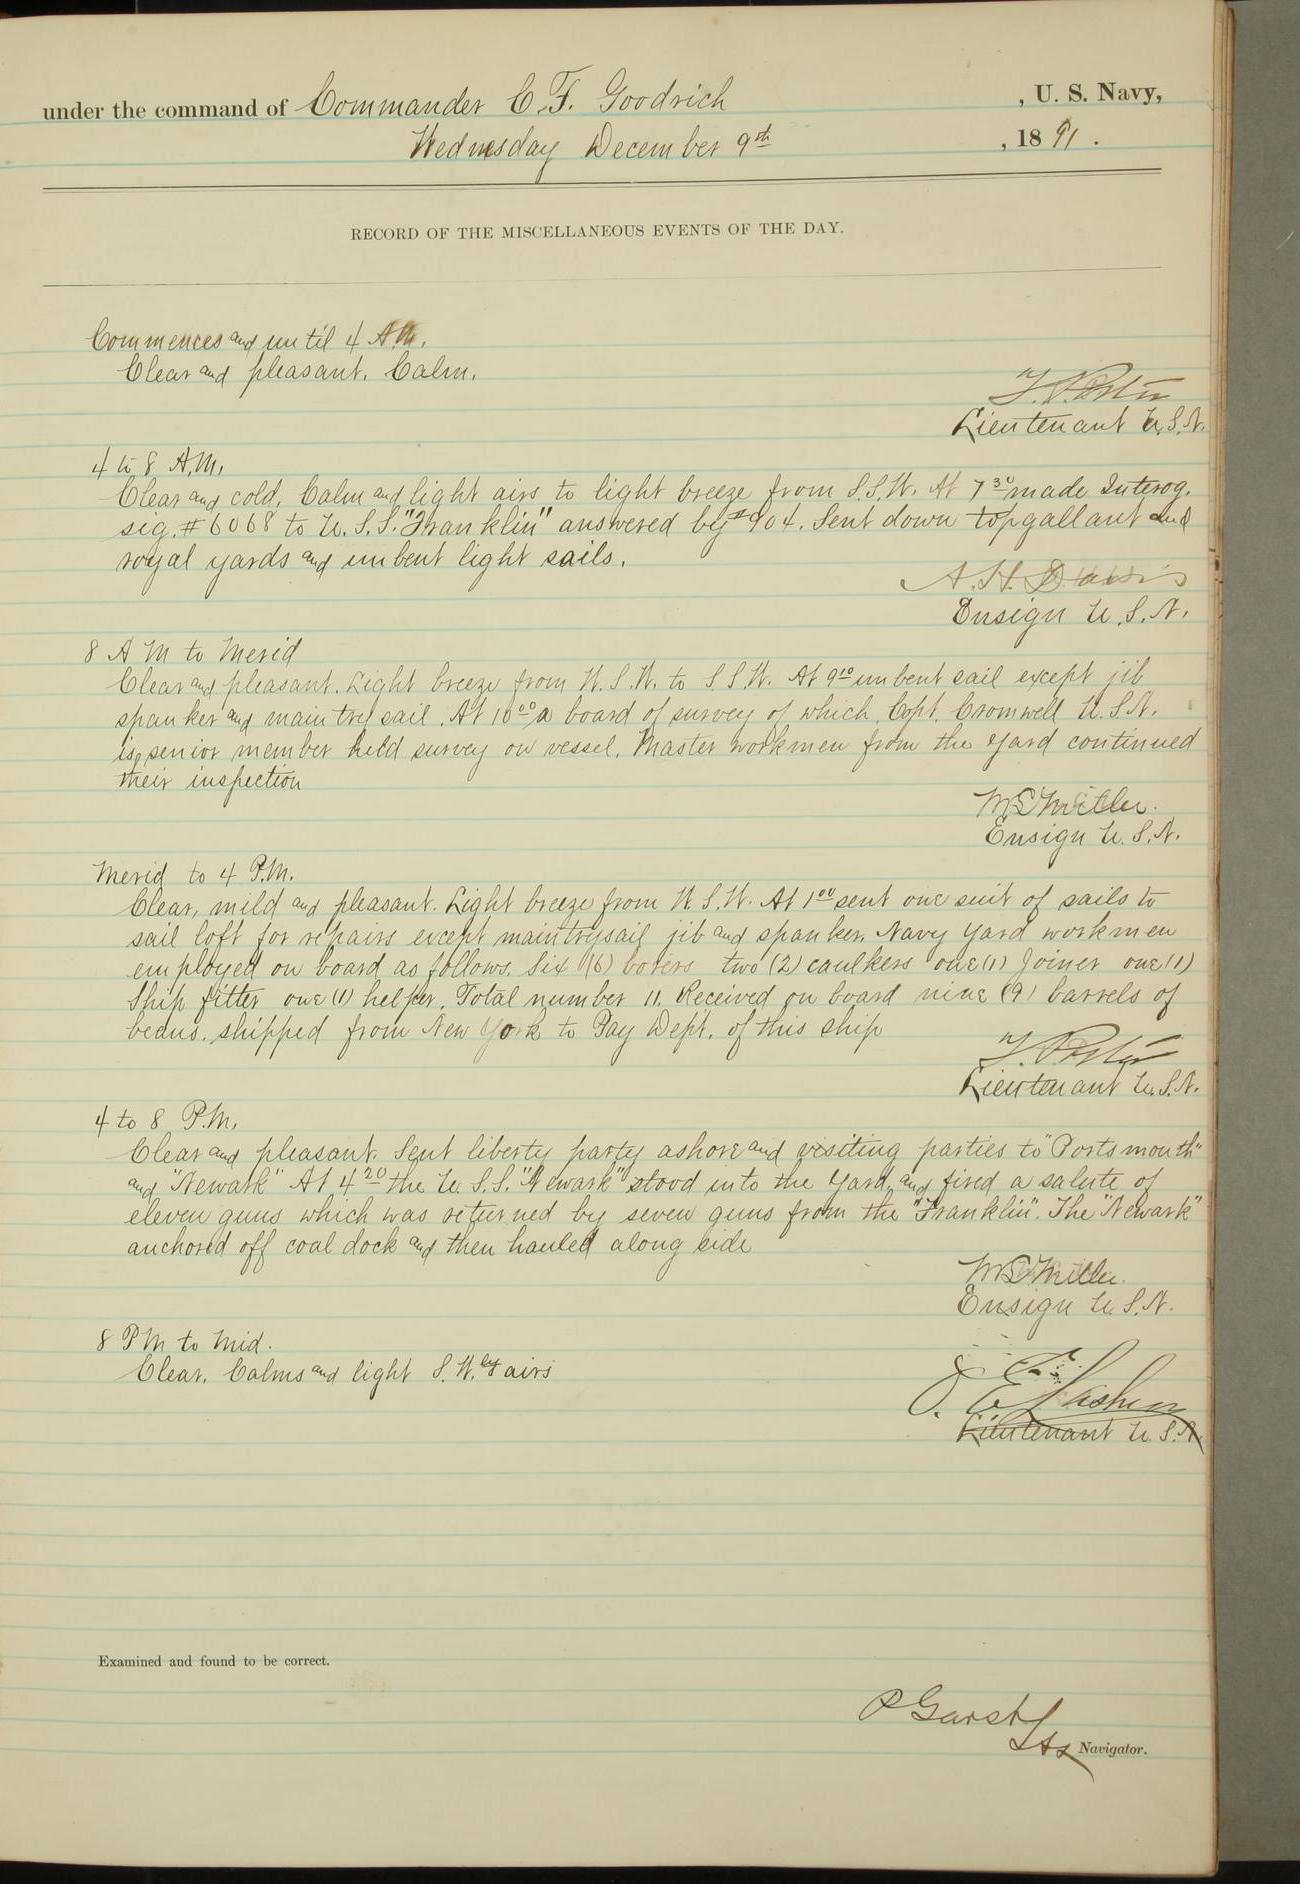 under the command of Commander C. F. Goodrich, U. S. Navy,
Wednesday December 9th, 1891.
RECORD OF THE MISCELLANEOUS EVENTS OF THE DAY.
Commences and until 4 A.M.
Clear and pleasant. Calm.
Lieutenant U.S.N.
4 to 8 A.M.
Clear and cold. Calm and light airs to light breeze from S.S.W. At 7 30 made Interog.
sig. #6068 to U.S.S. "Franklin" answered by #904. Sent down topgallant and
royal yards and unbent light sails.
A. H. Davis
Ensign U.S.N.
8 A M to Merid
Clear and pleasant. Light breeze from W.S.W. to S.S.W. At 9 10 unbent sail except jib
spanker and main trysail. At 10 00 a board of survey of which Capt. Cromwell U.S.N.
is senior member held survey on vessel. Master workmen from the yard continued
their inspection
Ensign U.S.N.
Merid to 4 P.M.
Clear, mild and pleasant. Light breeze from W.S.W. At 1 00 sent one suit of sails to
sail loft for repairs except maintrysail jib and spanker. Navy Yard workmen
employed on board as follows. Six (6) borers two (2) caulkers one (1) Joiner one (1)
Ship fitter one (1) helper. Total number 11. Received on board nine (9) barrels of
beans. shipped from New York to Pay Dept. of this ship
Lieutenant U.S.N.
4 to 8 P.M.
Clear and pleasant. Sent liberty party ashore and visiting parties to "Portsmouth"
and "Newark" At 4 20 the U.S.S. "Newark" stood into the Yard, and fired a salute of
eleven guns which was returned by seven guns from the "Franklin". The "Newark"
anchored off coal dock and then hauled along side
Ensign U.S.N.
8 P M to Mid.
Clear. Calms and light S.W.ly airs
Lieutenant U.S.N.
Examined and found to be correct.
P Garst
Navigator.